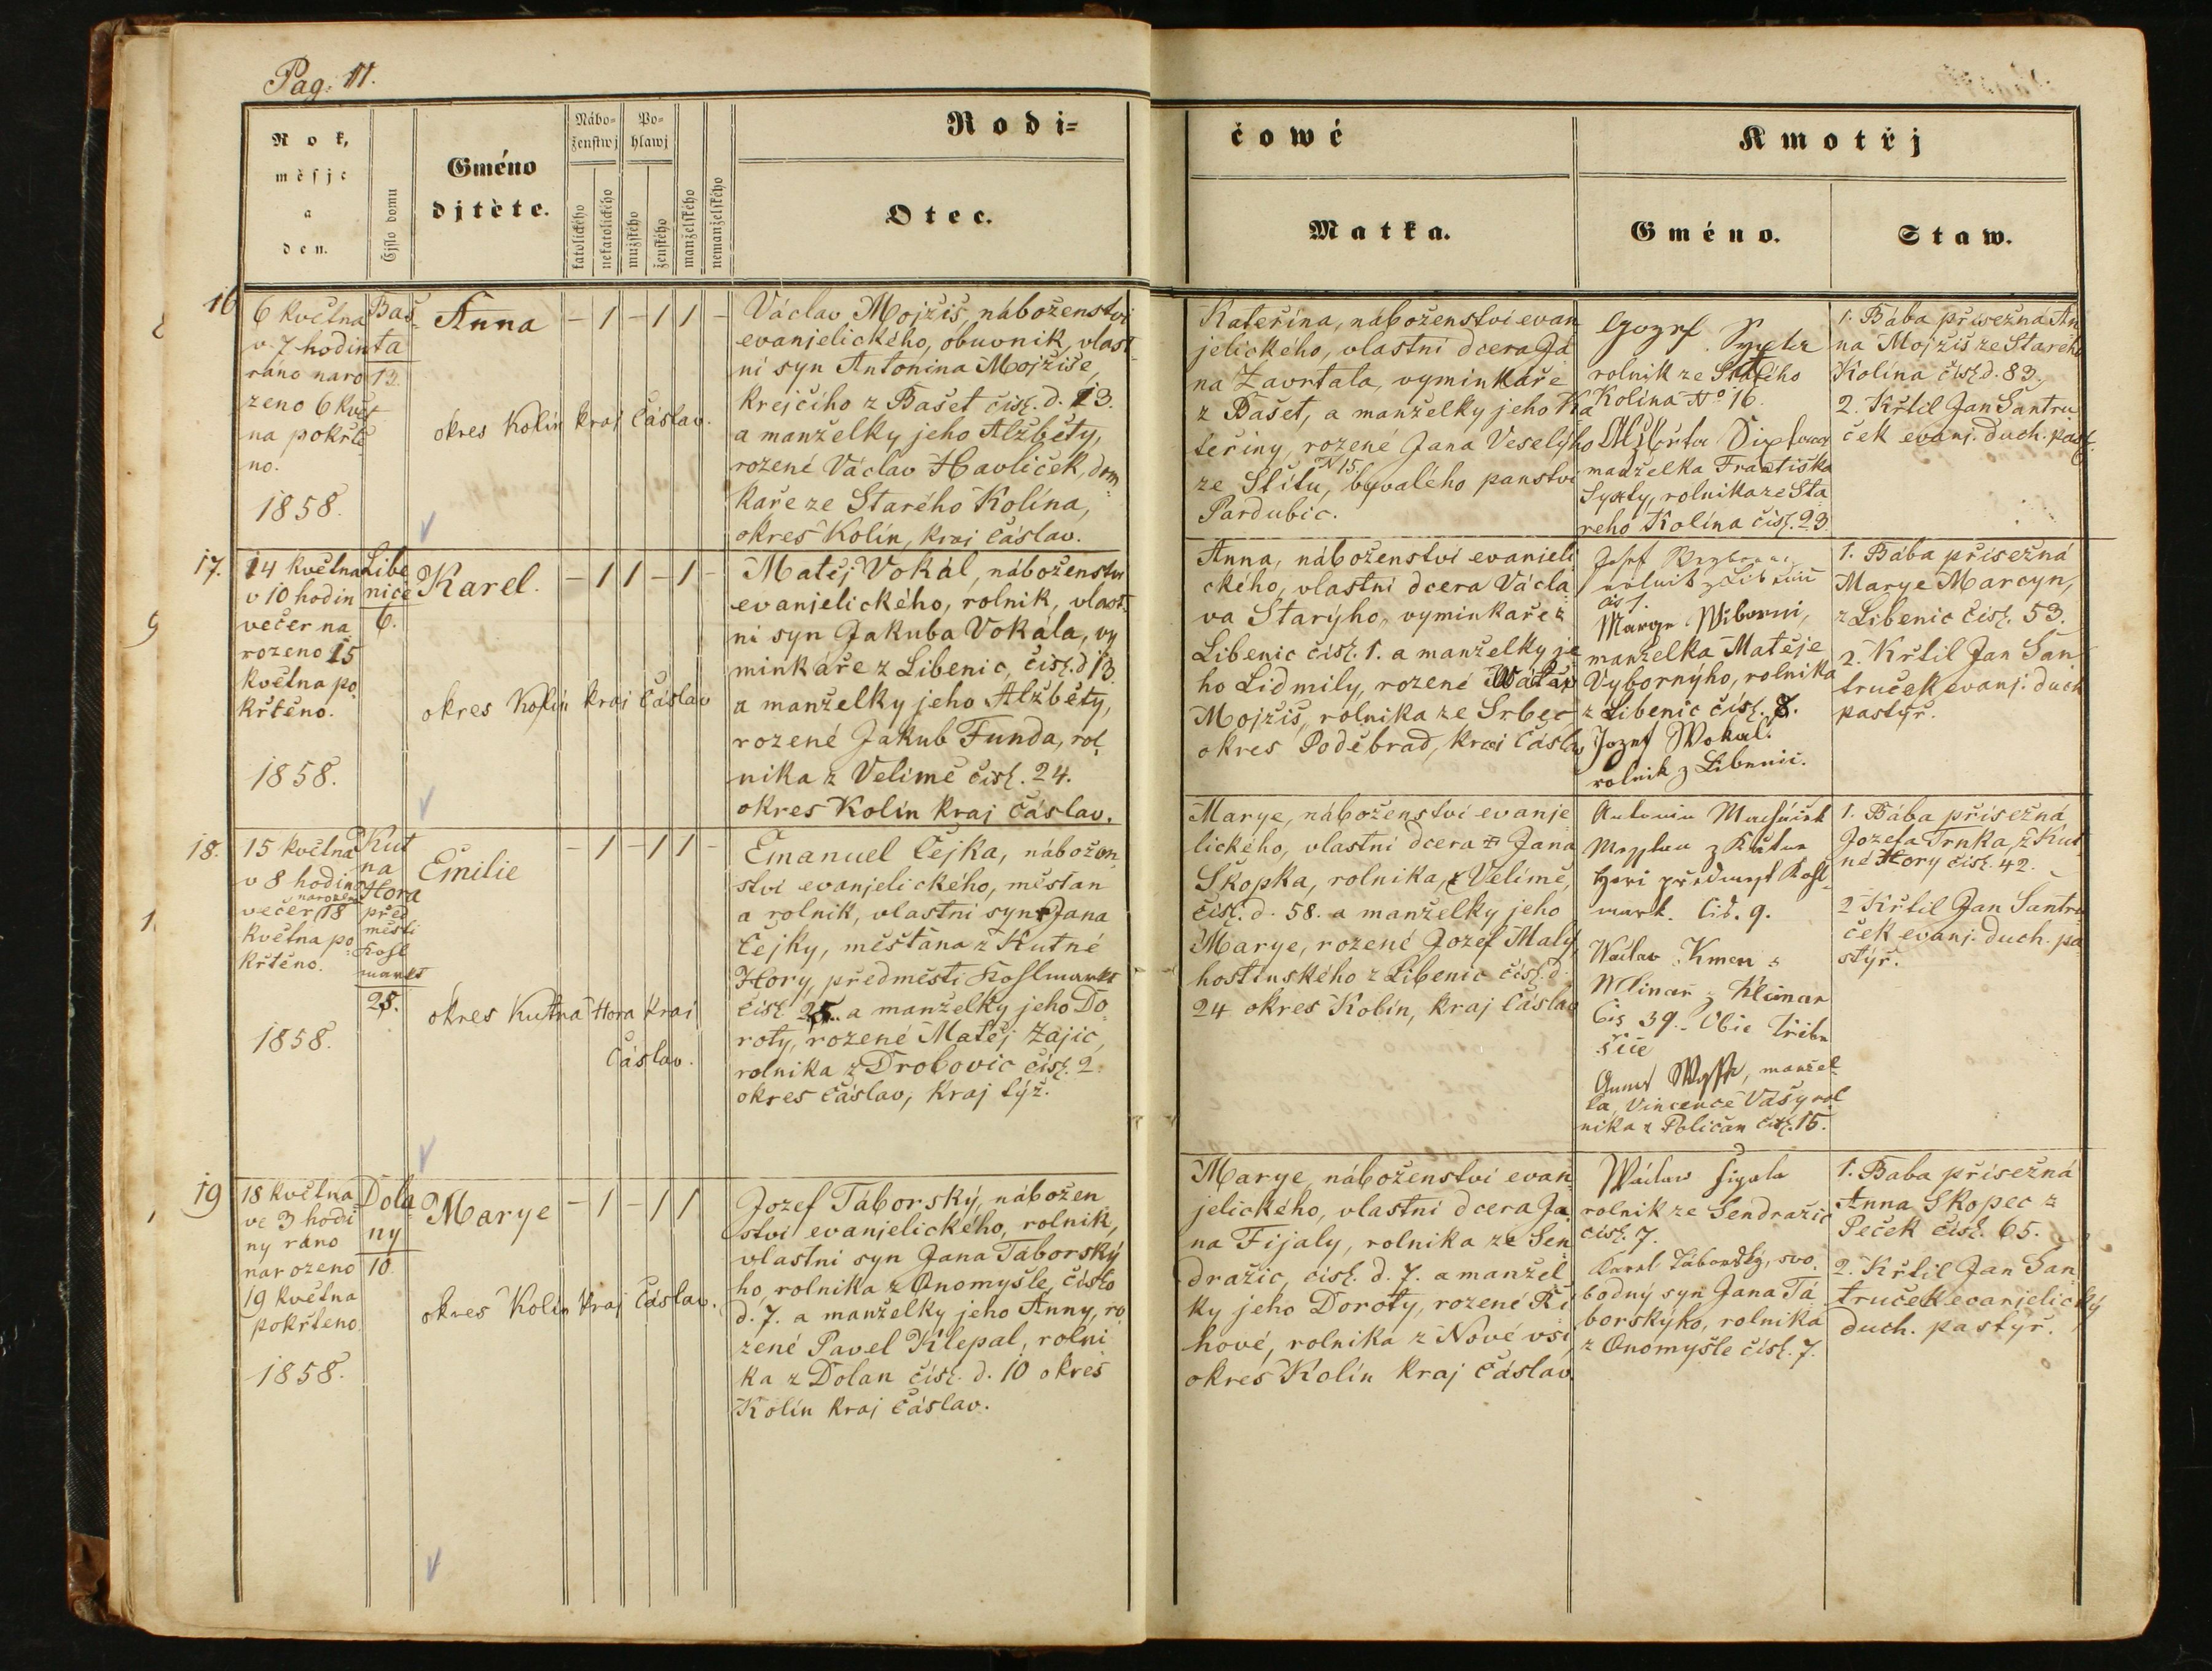 Pag. 11.
Rok,
měsjc
a
den.
Čjslo domu
Gméno
djtěte.
Nábo-
ženstwj
katolického
nekatolického
Po-
hlawj
mužského
ženského
manželského
nemanželského
Rodi-
Otec.
čowé
Matka.
Kmotřj
Gméno.
Staw.
16
6 května
v 7 hodin
ráno naro
zeno 6 kvėt
na pokřtě
no.
1858.
Baš-
ta
12.
Anna
– 1 – 1 1 –
okres Kolín kraj Čáslav.
Václav Mojžiš, náboženství
evanjelického, obuvník, vlast
ní syn Antonína Mojžíše,
krejčího z Bašet čísl. d. 13.
a manželky jeho Alžběty,
rozené Václav Havlíček, dom
kaře ze Starého Kolína,
okres Kolín, kraj Čáslav.
Kateřina, náboženství evan
jelického, vlastní dcera Ja
na Zavrtala, vyminkáře
z Bašet, a manželky jeho Ka
teřiny, rozené Jana Veselýho
ze Štítu, N 15 byvalého panství
Pardubic.
rolník ze Starého
Kolína No 16.
manželka Františka
Syxty, rolníka ze Sta
rého Kolína čísl. 23
1. Bába přísežná An
na Mojžiš ze Starého
Kolína čísl. d. 83.
2. Křtil Jan Šantrů
ček evanj. duch. past.
17.
14 května
v 10 hodin
večer na
rozeno 15
května po
křtěno.
1858.
Libe
nice
6.
Karel.
– 1 1 – 1 –
okres Kolín kraj Čáslav
Matěj Vokál, náboženství
evanjelického, rolník, vlast
ní syn Jakuba Vokála, vy
minkáře z Libenic, čísl. d 13.
a manželky jeho Alžběty,
rozené Jakub Funda, rol
níka z Velimě čísl. 24.
okres Kolín kraj Čáslav.
Anna, náboženství evanjeli
ckého, vlastní dcera Václa
va Starýho, vyminkáře z
Libenic čísl. 1. a manželky je
ho Lidmily, rozené Matěj
Mojžiš, rolníka ze Srbec
okres Poděbrad, kraj Čáslav
Josef
rolník z Libenic
čís 1.
Marye Wiborní,
manželka Matěje
Vybornýho, rolníka
z Libenic čísl. 8.
Jozef Wokal.
rolník z Libenic.
1. Bába přísežná
Marye Marcyn,
z Libenic čísl. 53.
2. Křtil Jan Šan
truček evanj. duch
pastýř.
18.
15 května
v 8 hodin
narozeno
večer, 18
května po
křtěno.
1858.
Kut
na
Hora
před
městí
Koßl
markt
25.
Emilie
– 1 – 1 1 –
okres Kutná Hora kraj
Čáslav.
Emanuel Čejka, nábožen
ství evanjelického, měštan
a rolník, vlastní syn Jana
Čejky, měšťana z Kutné
Hory, předměstí Koßlmarkt
čísl 25. a manželky jeho Do
roty, rozené Matěj Zajíc,
rolníka z Drobovic čísl. 2.
okres Čáslav, kraj týž.
Marye, náboženství evanje
lického, vlastní dcera Jana
Škopka, rolníka, z Velimě,
čísl. d. 58. a manželky jeho
Marye, rozené Jozef Malý,
hostinského z Libenic čísl. d.
24 okres Kolín, kraj Čáslav
Antonín Macháček
z Kutne
Hori předmest Koßl-
mark. Čis. 9.
Waclav Kmen
Mlinař z Hlinar
Čis 39. Obie Třeba
šice
Anna manžel-
ka, Vincence Vášy rol
níka z Poličan čísl. 15.
1. Bába přísežná
Jozefa Trnka, z Kut
né Hory čísl. 42.
2 Křtil Jan Šantrů
ček evanj. duch. pa
stýř.
19
18 května
ve 3 hodi
ny ráno
narozeno
19 května
pokřteno.
1858.
Dola
ny
10.
Marye
– 1 – 1 1
okres Kolín kraj Čáslav.
Jozef Táborský, nábožen
ství evanjelického, rolník,
vlastní syn Jana Táborský
ho, rolníka z Onomyšle, číslo
d. 7. a manželky jeho Anny, ro
zené Pavel Klepal, rolní
ka z Dolan čísl. d. 10 okres
Kolín kraj Čáslav.
Marye, náboženství evan
jelického, vlastní dcera Ja
na Fijaly, rolníka ze Sen
dražic, čísl. d. 7. a manžel
ky jeho Doroty, rozené Ři
hové, rolníka z Nové vsi,
okres Kolín kraj Čáslav
Wáclaw Figala
rolník ze Sendražic
čísl. 7.
Karel Táborský, svo
bodný syn Jana Tá
borskýho, rolníka
z Onomyšle čísl. 7.
1. Baba přísežná
Anna Škopec z
Peček čísl. 65.
2. Křtil Jan Šan
truček evanjelický
duch. pastýř.